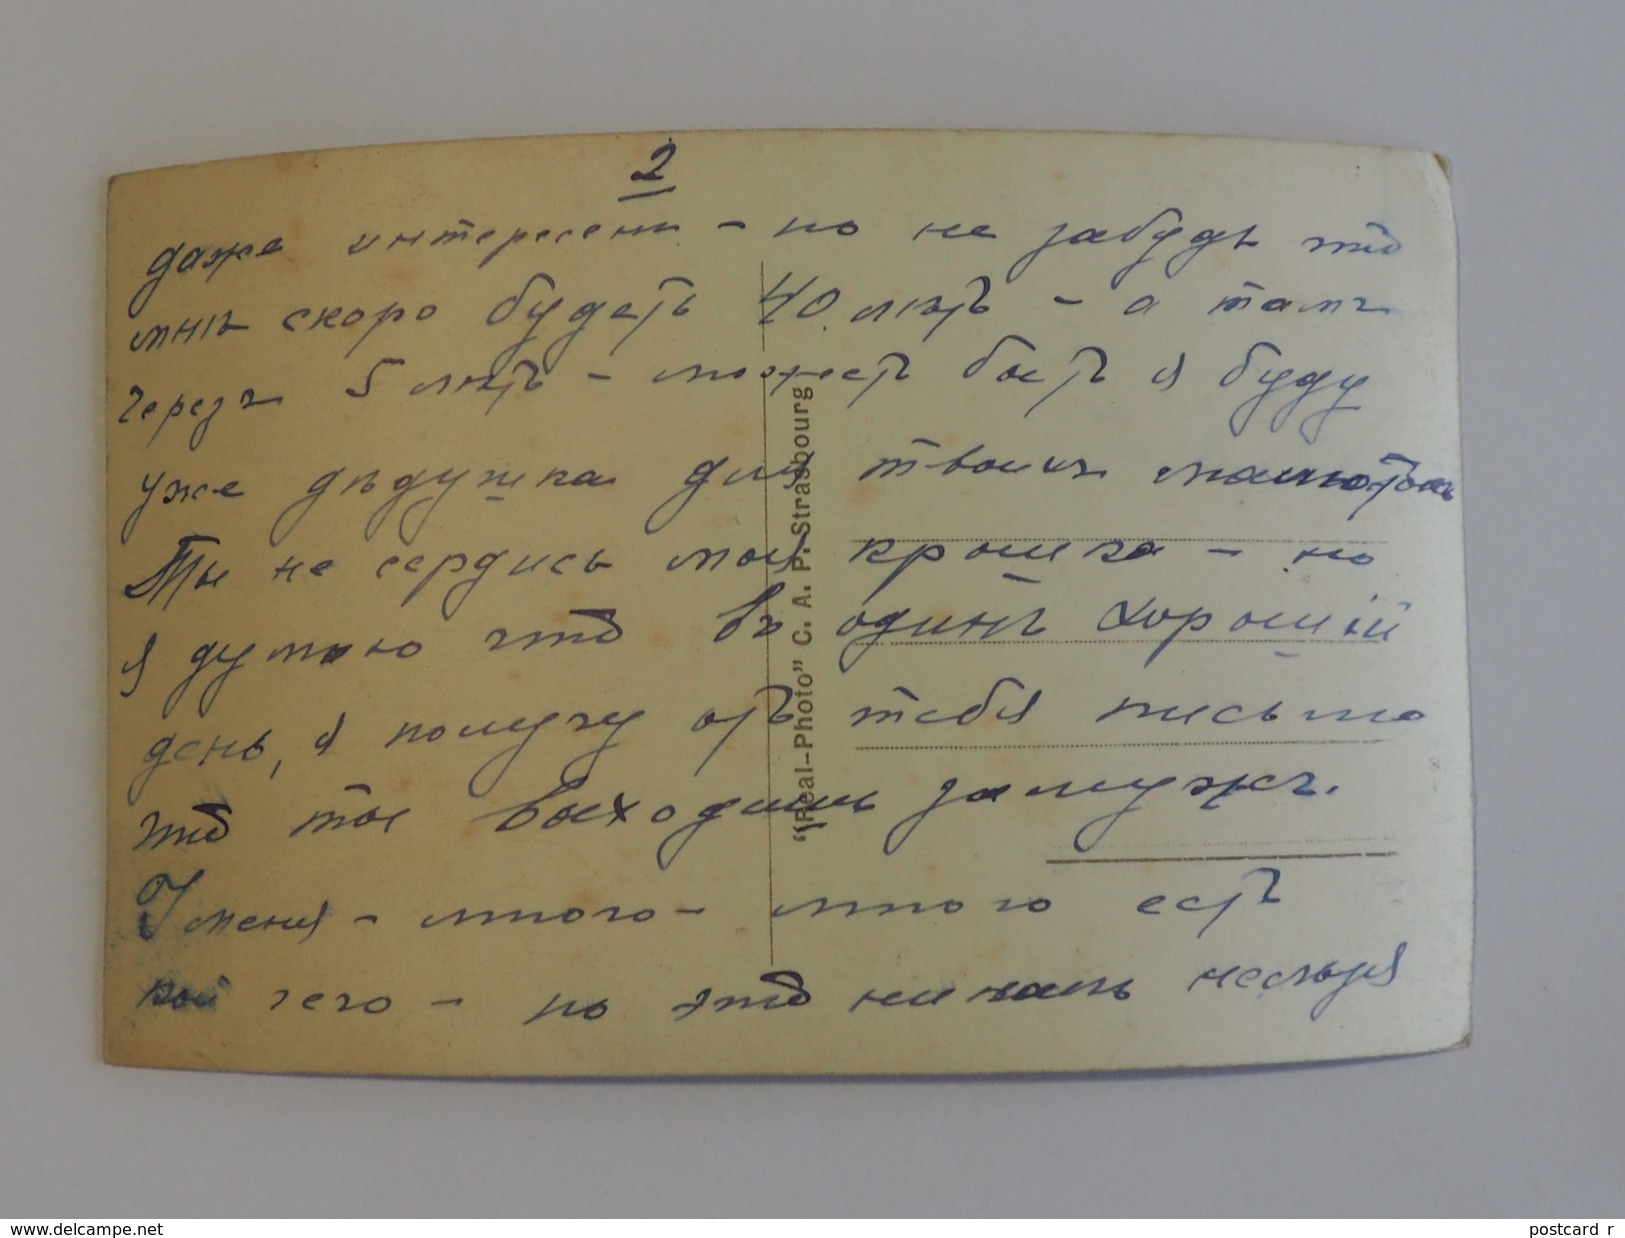 2
даже интересенъ - но не забудь что
мнѣ скоро будетъ 40 лѣтъ - а тамъ
черезъ 5 лѣтъ - можетъ быть я буду
уже дѣдушка для твоихъ малютокъ
Ты не сердись моя крошка - но
я думаю что въ одинъ хорошій
день, я получу отъ тебя письмо
что ты выходишь замужъ.
У меня - много - много есть
кой чего - но это написать нельзя
"Real-Photo" C. A. P. Strasbourg
www.delcampe.net
postcard_r